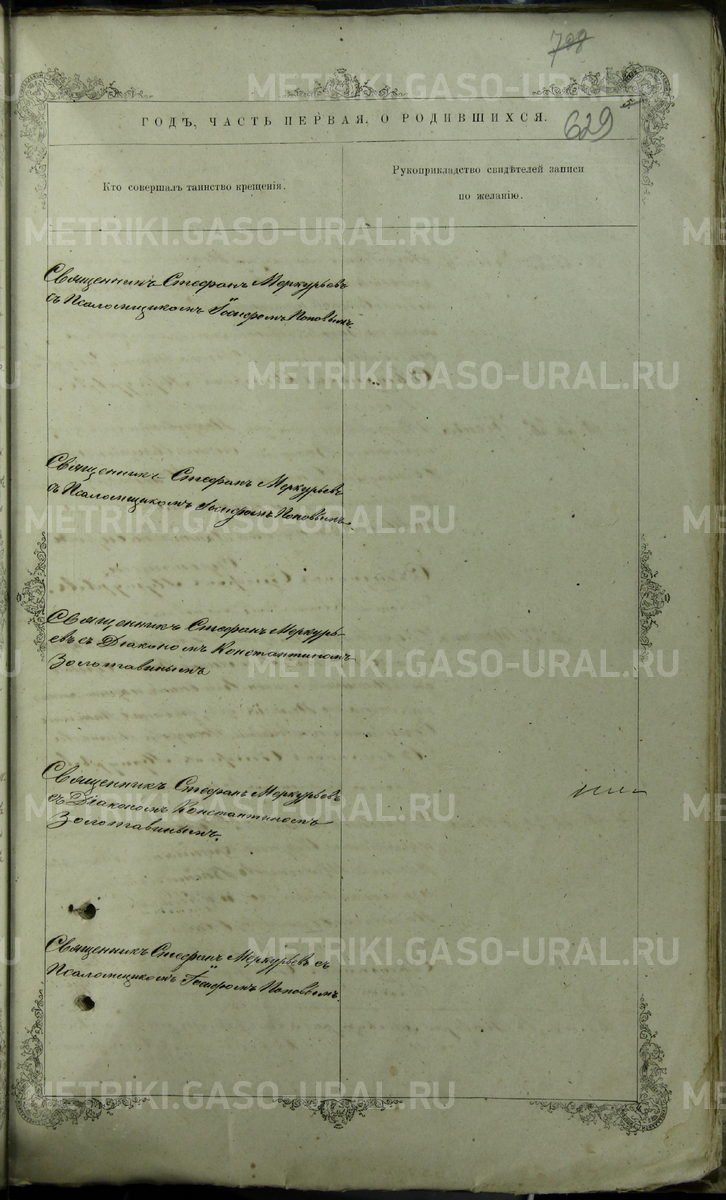 708
629
ГОДЪ, ЧАСТЬ ПЕРВАЯ, О РОДИВШИХСЯ.
Кто совершалъ таинство крещенія.
Рукоприкладство свидѣтелей записи
по желанію.
Священникъ Стефанъ Меркурьевъ
съ Псаломщикомъ Іосифомъ Поповымъ.
Священникъ Стефанъ Меркурьевъ
съ Псаломщикомъ Іосифомъ Поповымъ.
Священникъ Стефанъ Меркурь-
евъ съ Діакономъ Константиномъ
Золотавинымъ
Священникъ Стефанъ Меркурьевъ
съ Діакономъ Константиномъ
Золотавинымъ.
Священникъ Стефанъ Меркурьевъ съ
Псаломщикомъ Іосифомъ Поповымъ.
METRIKI.GASO-URAL.RU